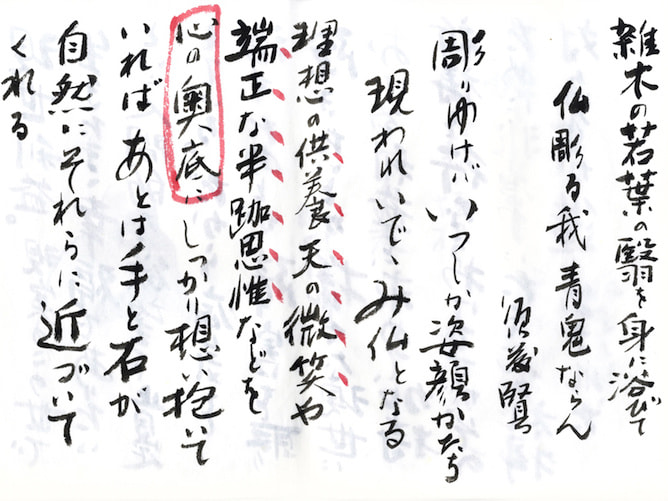 雑木の若葉の翳を身に浴びて
仏彫る我青鬼ならん
須藤賢
彫りゆけばいつしか姿顔かたち
現われいで、み仏となる
理想の供養天の微笑や
端正な半跏思惟などを
心の奥底にしっかり想い抱いて
いればあとは手と石が
自然にそれらに近づいて
くれる